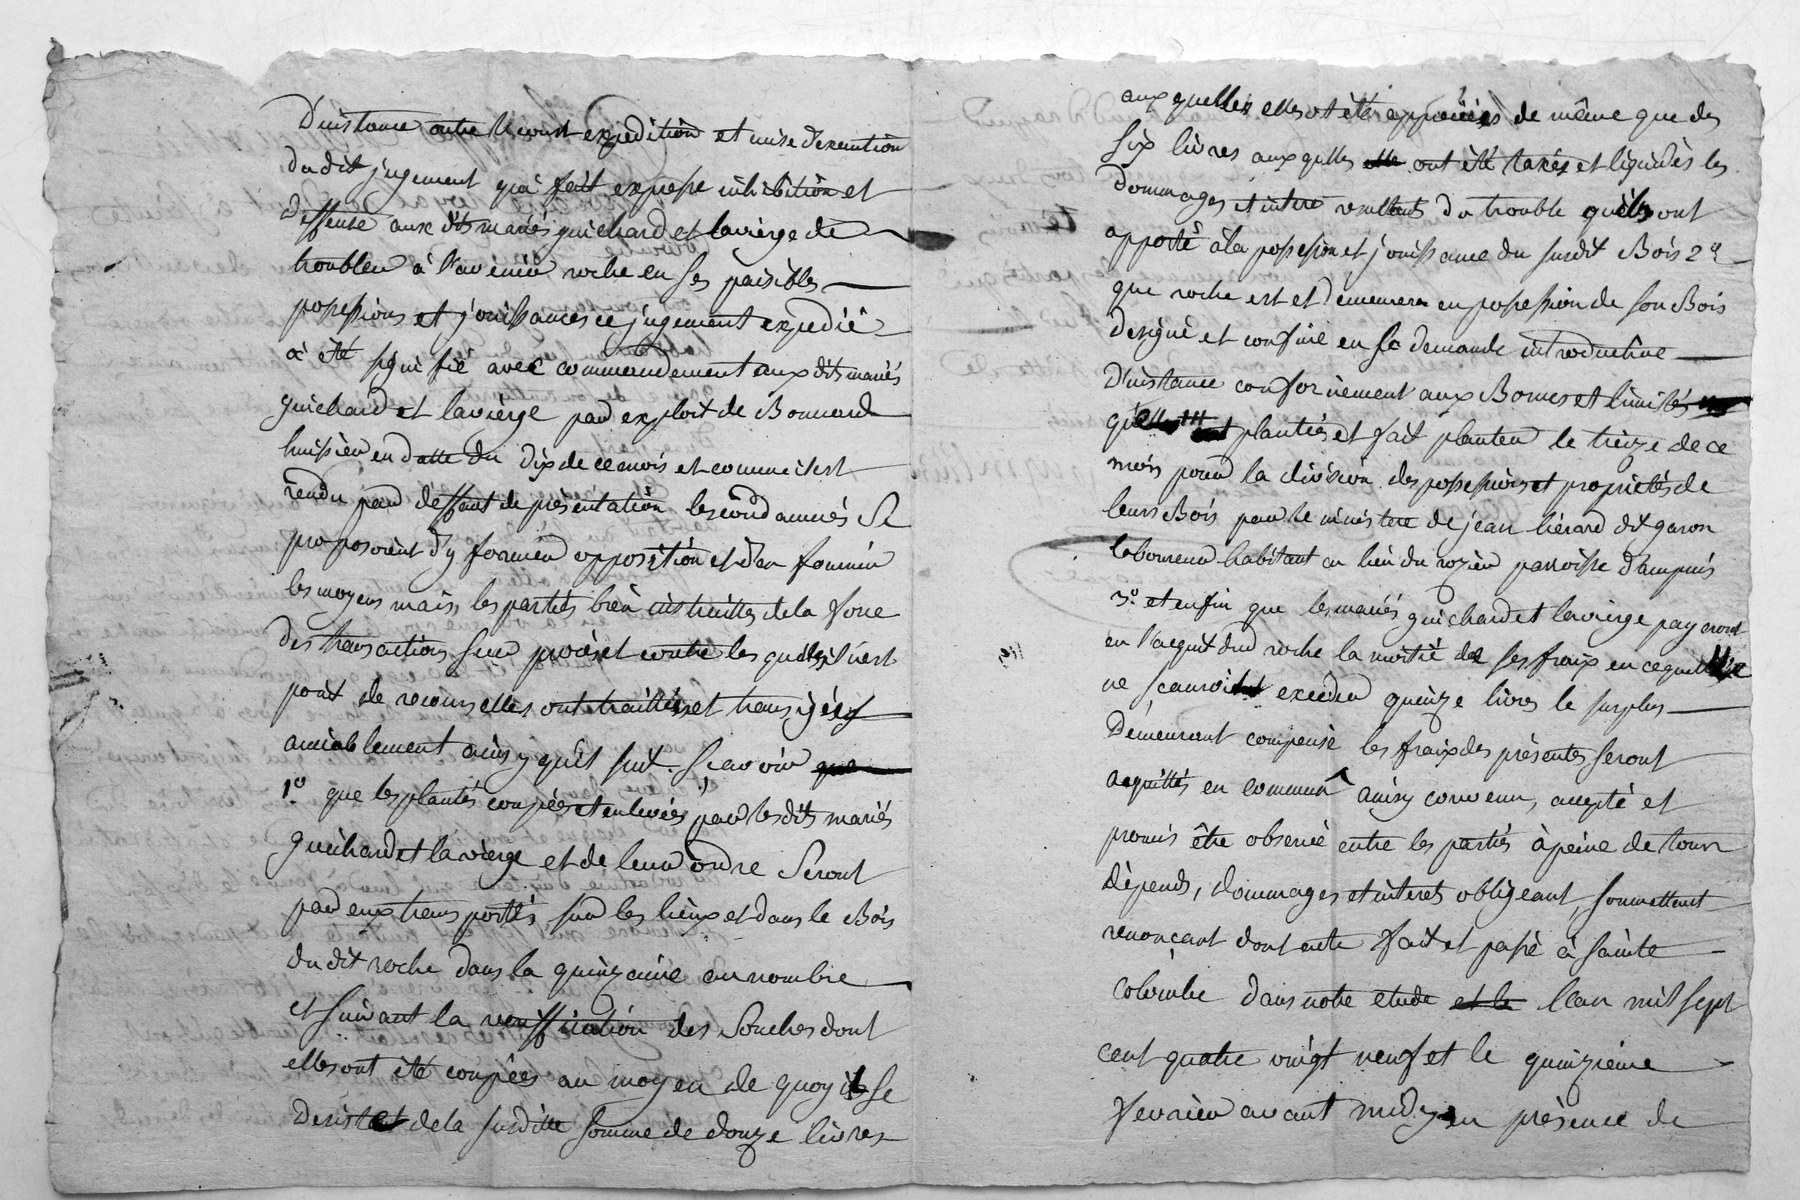 D'instance outre le cout expedition et mise d'exenution
du dit jugement qui fait expresse inhibition et
deffense aux dits mariés guichard et lavierge de
troubler à l'avenir roche en ses paisibles
possessions et jouissances ce jugement expedié
a été signifié avec commendement aux dits mariés
guichard et lavierge par exploit de Bonnard
huissier en datte du dix de ce mois et comme il est
rendu par deffaut de présentation les condamnés se
proposoient d'y former opposition et d'en fournir
les moyens mais les partiés bien instruittes de la force
des transactions sur procès et contre les quelles il n'est
point de recours elles ont traittés et transigées
amiablement ainsy qu'il suit. Scavoir
1º. que les plantés coupées et enlevées par les dits mariés
Guichard et lavierge et de leur ordre Seront
par eux transportés sur les lieux et dans le Bois
du dit roche dans la quinzaine au nombre
et suivant la veriffication des Souches dont
elles ont été coupées au moyen de quoy il se
desistet de la susditte somme de douze livres
aux quelles elles ont été appréciées de même que des
six livres aux qulles ont été taxés et liquidés les
dommages et interes resultants du trouble qu'ils ont
apporté à la possession et jouissance du susdit Bois 2º
que roche est et demeurera en possession de son Bois
designé et confiné en sa demande introductive
D'instance conformement aux Bornes et limités
qu'elles ont plantées et fait planter le treize de ce
mois pour la division des possessions et proprietés de
leurs Bois par le ministere de jean liérard dit garon
laboureur habitant au lieu du rozier parroisse d'ampuis
3º. et enfin que les mariés guichard et lavierge payeront
en l'acquit dud roche la moitié de ses fraix en ce quelle
ne scauroit exceder quinze livres le surplus
Demeurant compensé les fraix des présentes seront
acquittés en commun ainsy convenu, accepté et
promis être observé entre les partiés à peine de tous
dépends, dommages et interets obligeant, soumettent
renonçant dont acte fait et passé à sainte
colombe dans notre etude l'an mil sept
cent quatre vingt neuf et le quinzieme
fevrier avant midy en présence de